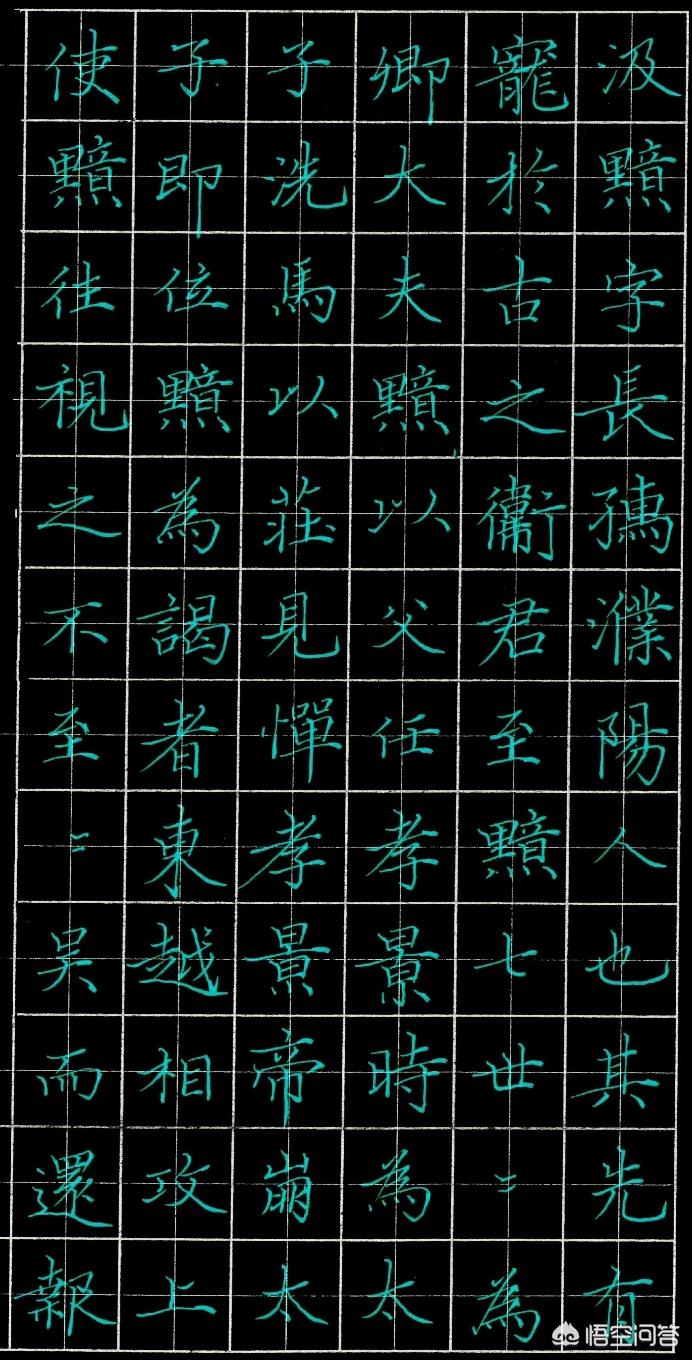 汲黯字長孺濮陽人也其先有
寵於古之衛君至黯七世〻為
卿大夫黯以父任孝景時為太
子洗馬以莊見憚孝景帝崩太
子即位黯為謁者東越相攻上
使黯往視之不至〻吳而還報
悟空问答